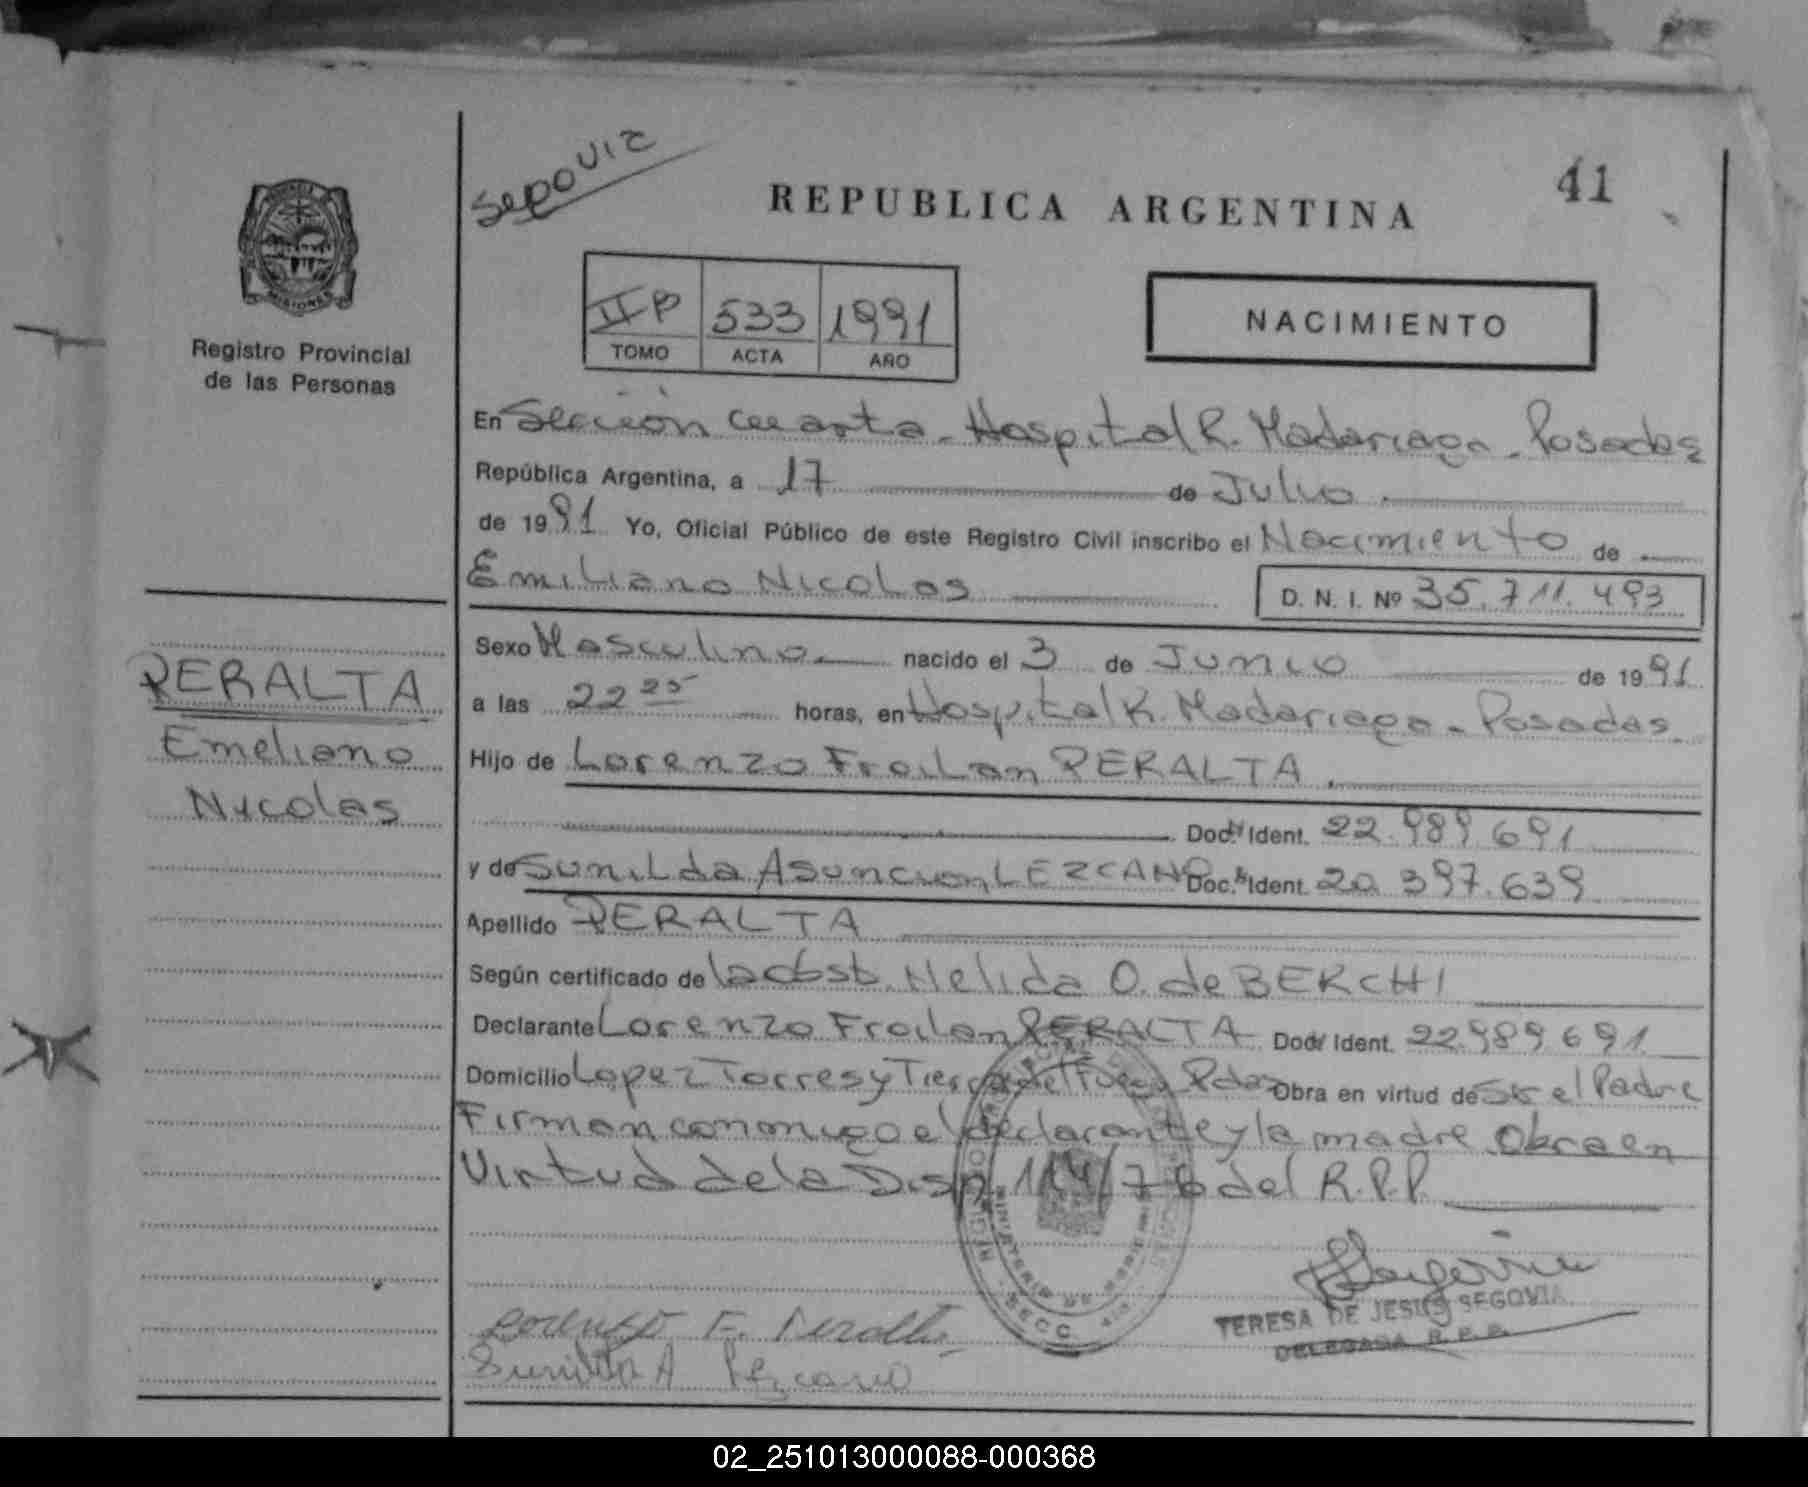 41
REPUBLICA ARGENTINA
MISIONES
Registro Provincial
de las Personas
II B 533 1991
TOMO ACTA AÑO
NACIMIENTO
En Sección Cuarta - Hospital R. Madariaga - Posadas
República Argentina, a 17 de Julio
de 1991 Yo, Oficial Público de este Registro Civil inscribo el Nacimiento de
Emiliano Nicolas D. N. I. Nº 35.711.493
Sexo Masculino nacido el 3 de Junio de 1991
a las 22 25 horas, en Hospital R. Madariaga - Posadas
Hijo de Lorenzo Froilan PERALTA
Doc. Ident. 22.989.691
y de Sunilda Asuncion LEZCANO Doc. Ident. 20.397.639
Apellido PERALTA
Según certificado de la obst. Nelida O. de BERCHI
Declarante Lorenzo Froilan PERALTA Doc. Ident. 22.989.691
Domicilio Lopez Torres y Tierra del Fuego Pdas Obra en virtud de ser el Padre
Firman conmigo el declarante y la madre Obra en
Virtud de la Disp. 114/76 del R.P.P.
PERALTA
Emeliano
Nicolas
Lorenzo F. Peralta
Sunilda A Lezcano
TERESA DE JESUS SEGOVIA
DELEGADA R. P. P.
02_251013000088-000368